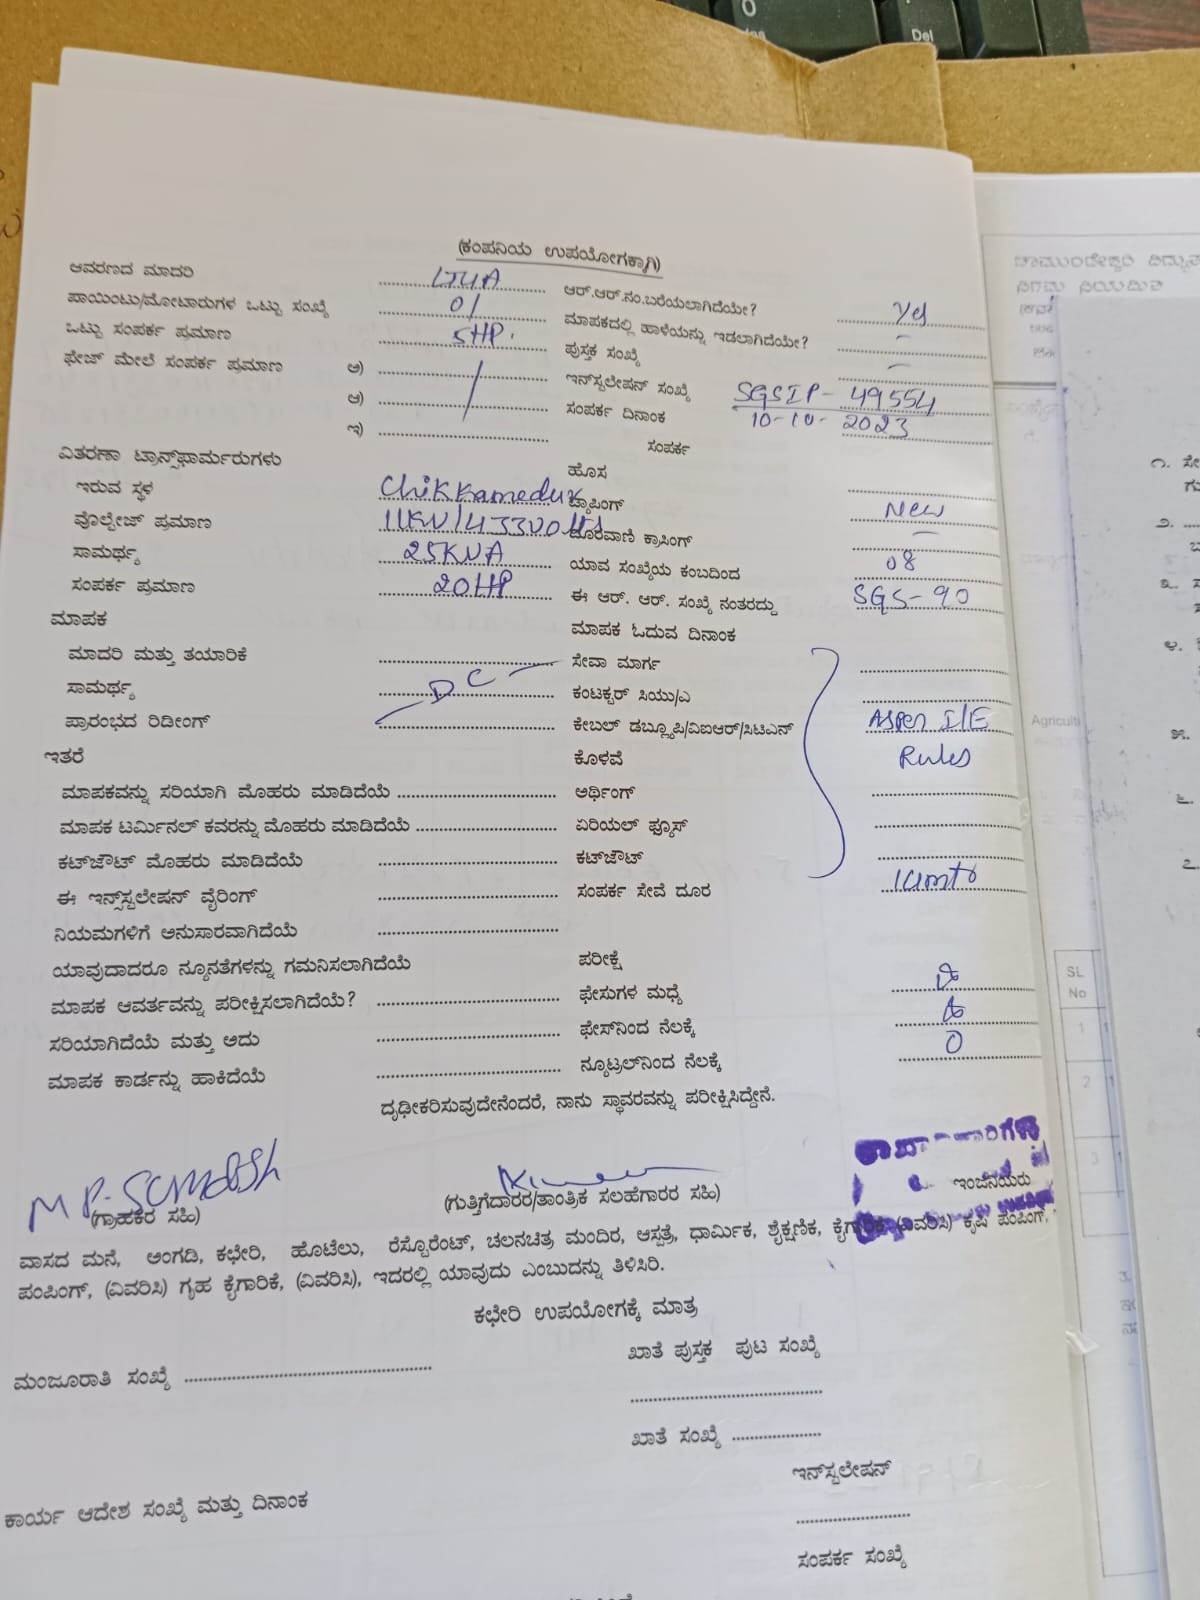 0
Del
(ಕಂಪನಿಯ ಉಪಯೋಗಕ್ಕಾಗಿ)
ಆವರಣದ ಮಾದರಿ LT4A ಆರ್.ಆರ್.ನಂ.ಬರೆಯಲಾಗಿದೆಯೇ? Yes
ಪಾಯಿಂಟು/ಮೋಟಾರುಗಳ ಒಟ್ಟು ಸಂಖ್ಯೆ 01 ಮಾಪಕದಲ್ಲಿ ಹಾಳೆಯನ್ನು ಇಡಲಾಗಿದೆಯೇ? -
ಒಟ್ಟು ಸಂಪರ್ಕ ಪ್ರಮಾಣ 5HP. ಪುಸ್ತಕ ಸಂಖ್ಯೆ -
ಫೇಜ್ ಮೇಲೆ ಸಂಪರ್ಕ ಪ್ರಮಾಣ ಅ) ಇನ್‌ಸ್ಟಲೇಷನ್ ಸಂಖ್ಯೆ SGSIP-49554
ಆ) ಸಂಪರ್ಕ ದಿನಾಂಕ 10-10-2023
ಇ) ಸಂಪರ್ಕ
ವಿತರಣಾ ಟ್ರಾನ್ಸ್‌ಫಾರ್ಮರುಗಳು ಹೊಸ
ಇರುವ ಸ್ಥಳ Chikkamedur ಟ್ಯಾಪಿಂಗ್ New
ವೊಲ್ಟೇಜ್ ಪ್ರಮಾಣ 11KV/433Volts ದೂರವಾಣಿ ಕ್ರಾಸಿಂಗ್ -
ಸಾಮರ್ಥ್ಯ 25KVA ಯಾವ ಸಂಖ್ಯೆಯ ಕಂಬದಿಂದ 08
ಸಂಪರ್ಕ ಪ್ರಮಾಣ 20HP ಈ ಆರ್. ಆರ್. ಸಂಖ್ಯೆ ನಂತರದ್ದು SGS-90
ಮಾಪಕ ಮಾಪಕ ಓದುವ ದಿನಾಂಕ
ಮಾದರಿ ಮತ್ತು ತಯಾರಿಕೆ ಸೇವಾ ಮಾರ್ಗ
ಸಾಮರ್ಥ್ಯ DC ಕಂಟಕ್ಟರ್ ಸಿಯು/ಎ
ಪ್ರಾರಂಭದ ರಿಡೀಂಗ್ ಕೇಬಲ್ ಡಬ್ಲ್ಯೂಪಿ/ವಿಐಆರ್/ಸಿಟಿಎನ್ Asper I/E
ಇತರೆ ಕೊಳವೆ Rules
ಮಾಪಕವನ್ನು ಸರಿಯಾಗಿ ಮೊಹರು ಮಾಡಿದೆಯೆ ಅರ್ಥಿಂಗ್
ಮಾಪಕ ಟರ್ಮಿನಲ್ ಕವರನ್ನು ಮೊಹರು ಮಾಡಿದೆಯೆ ಏರಿಯಲ್ ಫ್ಯೂಸ್
ಕಟ್‌ಜೌಟ್ ಮೊಹರು ಮಾಡಿದೆಯೆ ಕಟ್‌ಜೌಟ್
ಈ ಇನ್‌ಸ್ಟಲೇಷನ್ ವೈರಿಂಗ್ ಸಂಪರ್ಕ ಸೇವೆ ದೂರ
ನಿಯಮಗಳಿಗೆ ಅನುಸಾರವಾಗಿದೆಯೆ
ಯಾವುದಾದರೂ ನ್ಯೂನತೆಗಳನ್ನು ಗಮನಿಸಲಾಗಿದೆಯೆ ಪರೀಕ್ಷೆ
ಮಾಪಕ ಆವರ್ತವನ್ನು ಪರೀಕ್ಷಿಸಲಾಗಿದೆಯೆ? ಫೇಸುಗಳ ಮಧ್ಯೆ
ಸರಿಯಾಗಿದೆಯೆ ಮತ್ತು ಅದು ಫೇಸ್‌ನಿಂದ ನೆಲಕ್ಕೆ
ಮಾಪಕ ಕಾರ್ಡನ್ನು ಹಾಕಿದೆಯೆ ನ್ಯೂಟ್ರಲ್‌ನಿಂದ ನೆಲಕ್ಕೆ 0
ದೃಢೀಕರಿಸುವುದೇನೆಂದರೆ, ನಾನು ಸ್ಥಾವರವನ್ನು ಪರೀಕ್ಷಿಸಿದ್ದೇನೆ.
(ಗ್ರಾಹಕರ ಸಹಿ) (ಗುತ್ತಿಗೆದಾರರ/ತಾಂತ್ರಿಕ ಸಲಹೆಗಾರರ ಸಹಿ) ಇಂಜಿನಿಯರು
ವಾಸದ ಮನೆ, ಅಂಗಡಿ, ಕಛೇರಿ, ಹೊಟೆಲು, ರೆಸ್ಟೊರೆಂಟ್, ಚಲನಚಿತ್ರ ಮಂದಿರ, ಆಸ್ಪತ್ರೆ, ಧಾರ್ಮಿಕ, ಶೈಕ್ಷಣಿಕ, ಕೈಗಾರಿಕೆ (ವಿವರಿಸಿ) ಕೃಷಿ ಪಂಪಿಂಗ್,
ಪಂಪಿಂಗ್, (ವಿವರಿಸಿ) ಗೃಹ ಕೈಗಾರಿಕೆ, (ವಿವರಿಸಿ), ಇದರಲ್ಲಿ ಯಾವುದು ಎಂಬುದನ್ನು ತಿಳಿಸಿರಿ.
ಕಛೇರಿ ಉಪಯೋಗಕ್ಕೆ ಮಾತ್ರ
ಖಾತೆ ಪುಸ್ತಕ ಪುಟ ಸಂಖ್ಯೆ
ಮಂಜೂರಾತಿ ಸಂಖ್ಯೆ
ಖಾತೆ ಸಂಖ್ಯೆ
ಇನ್‌ಸ್ಟಲೇಷನ್
ಕಾರ್ಯ ಆದೇಶ ಸಂಖ್ಯೆ ಮತ್ತು ದಿನಾಂಕ
ಸಂಪರ್ಕ ಸಂಖ್ಯೆ
Agricult
SL
No
1
2
3